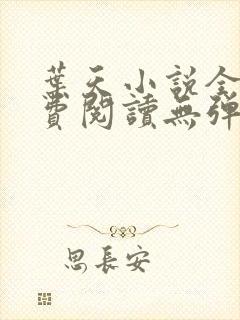 葉天小說全
費閱讀無彈
思長安